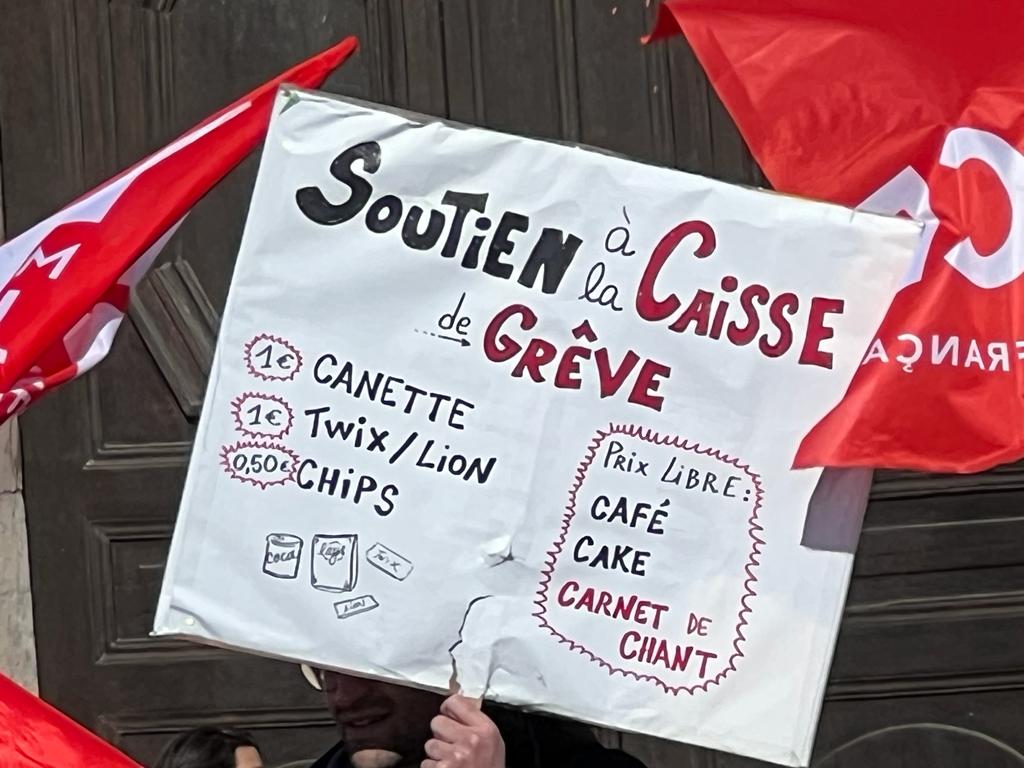 SOUTIEN à
la CAISSE
de GRÊVE
1€ CANETTE
1€ TWIX/LION
0,50€ CHIPS
coca lays TWIX
LION
PRIX LIBRE:
CAFÉ
CAKE
CARNET DE
CHANT
C
FRANÇA